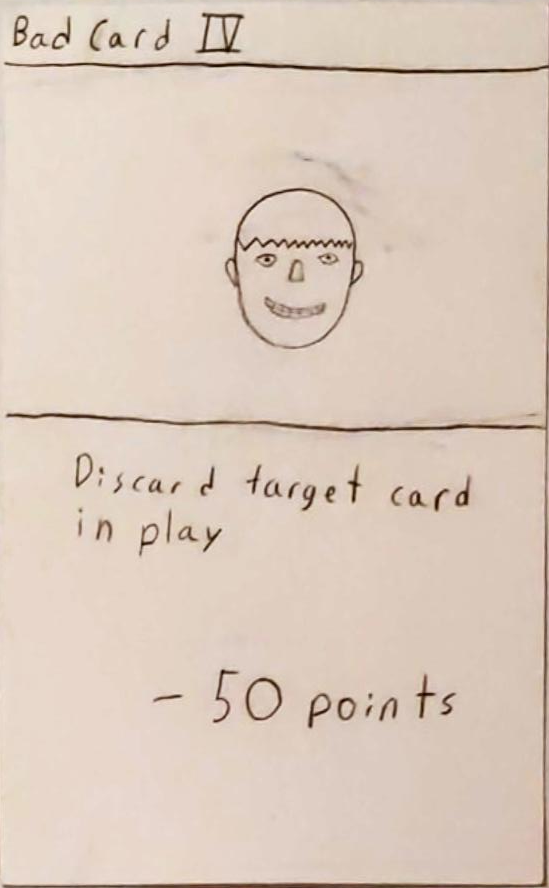 Bad Card IV
Discard target card
in play
- 50 points